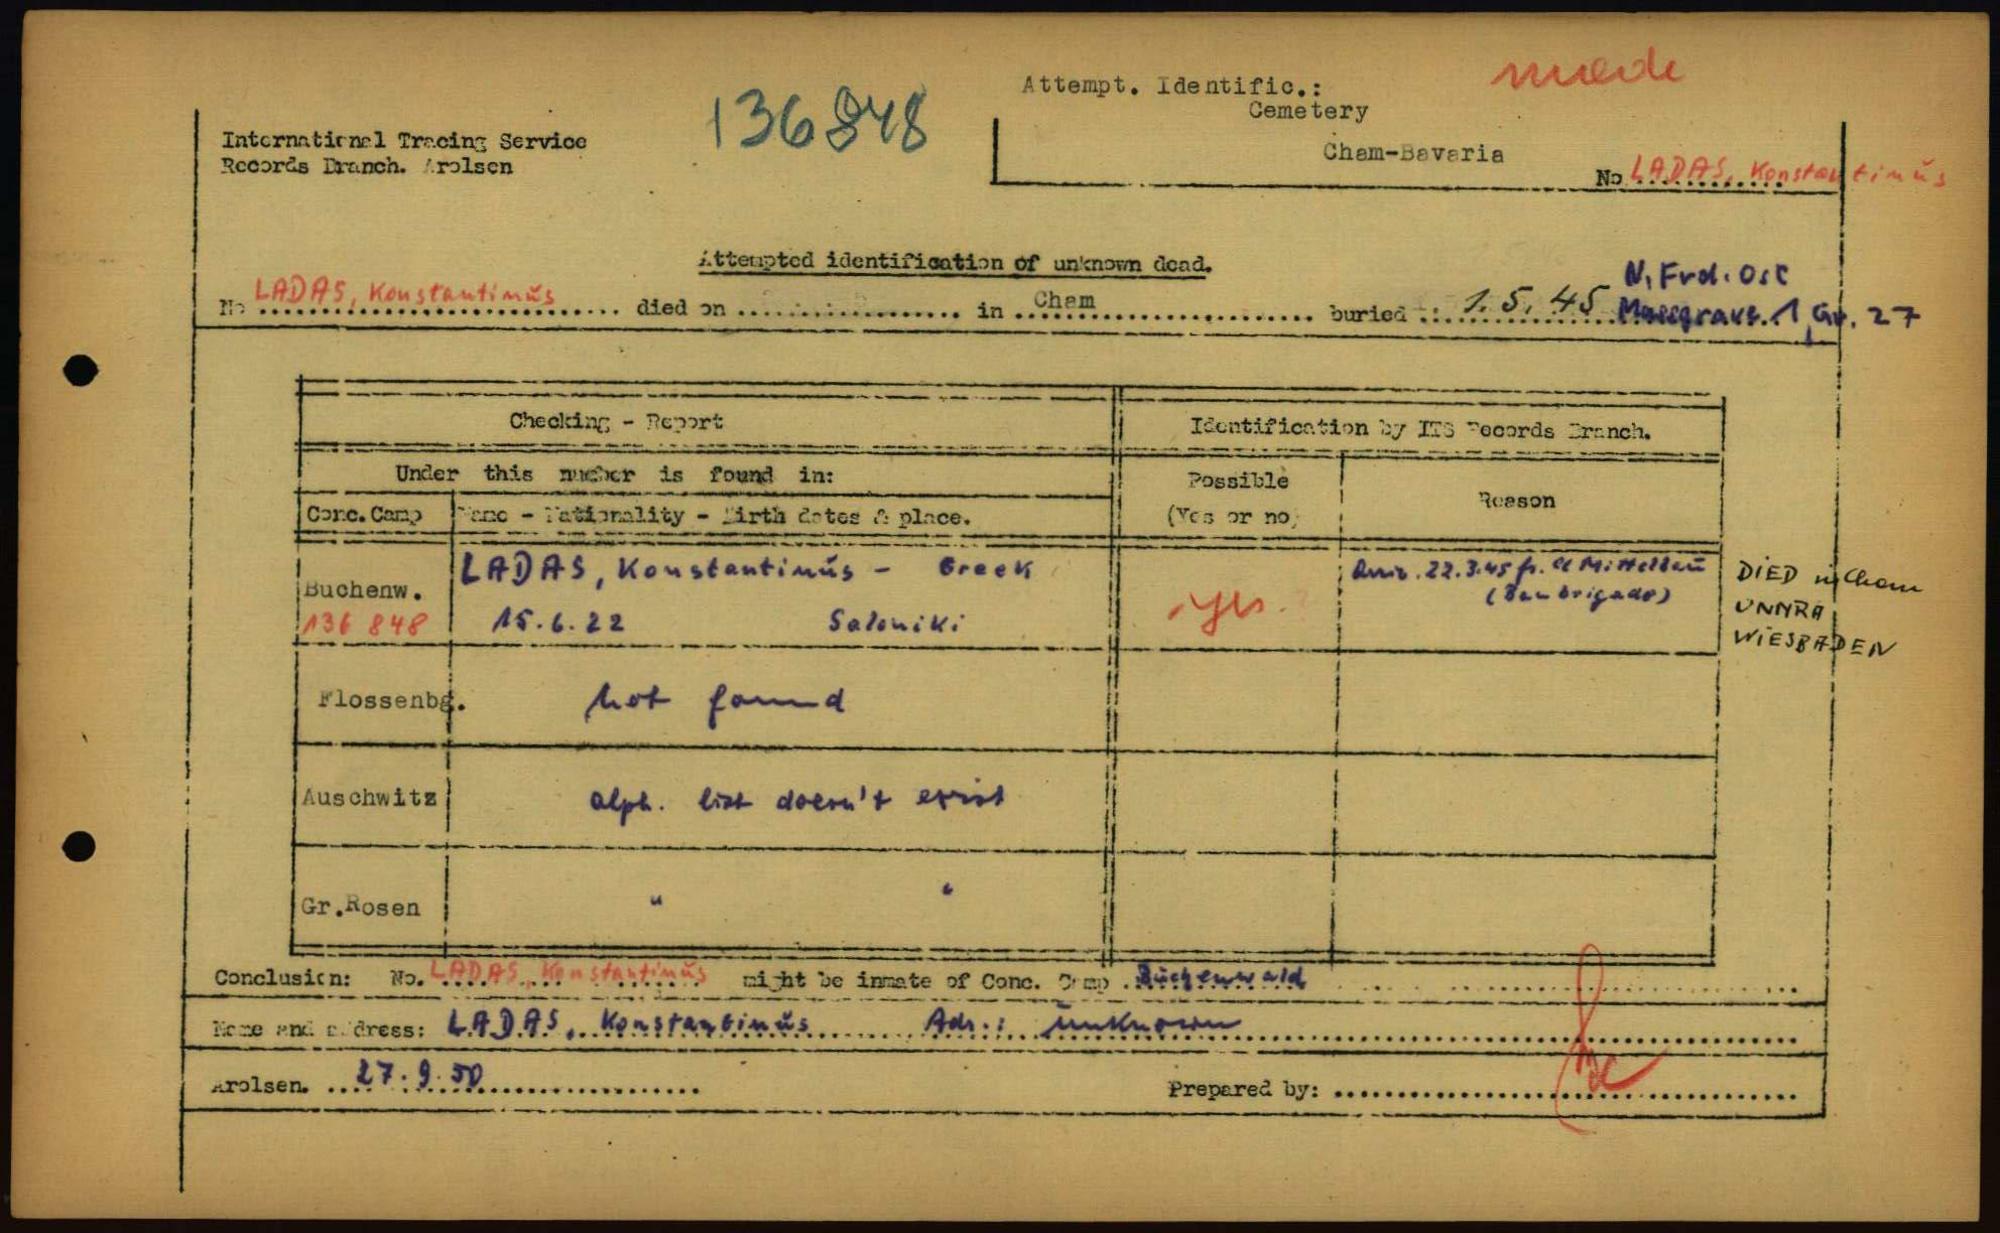 made
Attempt. Identific.:
Cemetery
136848
International Tracing Service
Records Branch. Arolsen
Cham-Bavaria
No LADAS, Konstantinŭs
Attempted identification of unknown dead.
N, Frd. Ost
No LADAS, Konstantinŭs died on in Cham buried 1.5.45 Massgrave 1, Gr. 27
Checking - Report
Identification by ITS Records Branch.
Under this number is found in:
Possible
(Yes or no)
Reason
Conc. Camp
Name - Nationality - Birth dates & place.
Buchenw.
136 848
LADAS, Konstantinŭs - Greek
15.6.22 Saloniki
yes.
Arriv. 22.3.45 fr. CC Mittelbaŭ
(Baubrigade)
DIED in Cham
UNNRA
WIESBADEN
Flossenbg.
not found
Auschwitz
alph. list doesn't exist
Gr.Rosen
" "
Conclusion: No. LADAS, Konstantinŭs might be inmate of Conc. Camp Bŭchenwald
Name and address: LADAS, Konstantinŭs Adr.: unknown
Arolsen. 27.9.50
Prepared by: